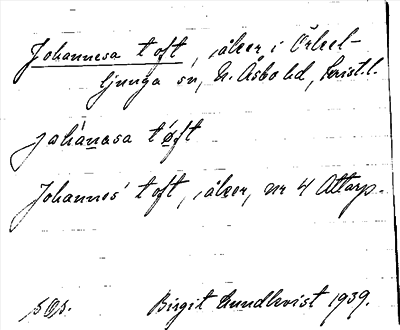 Johannesa toft, åker i Örkel-
ljunga sn, N. Åsbo hd, Krist.l.
johànasa tøft
Johannes' toft, åker, nr 4 Attarp.
Birgit Lundkvist 1939.